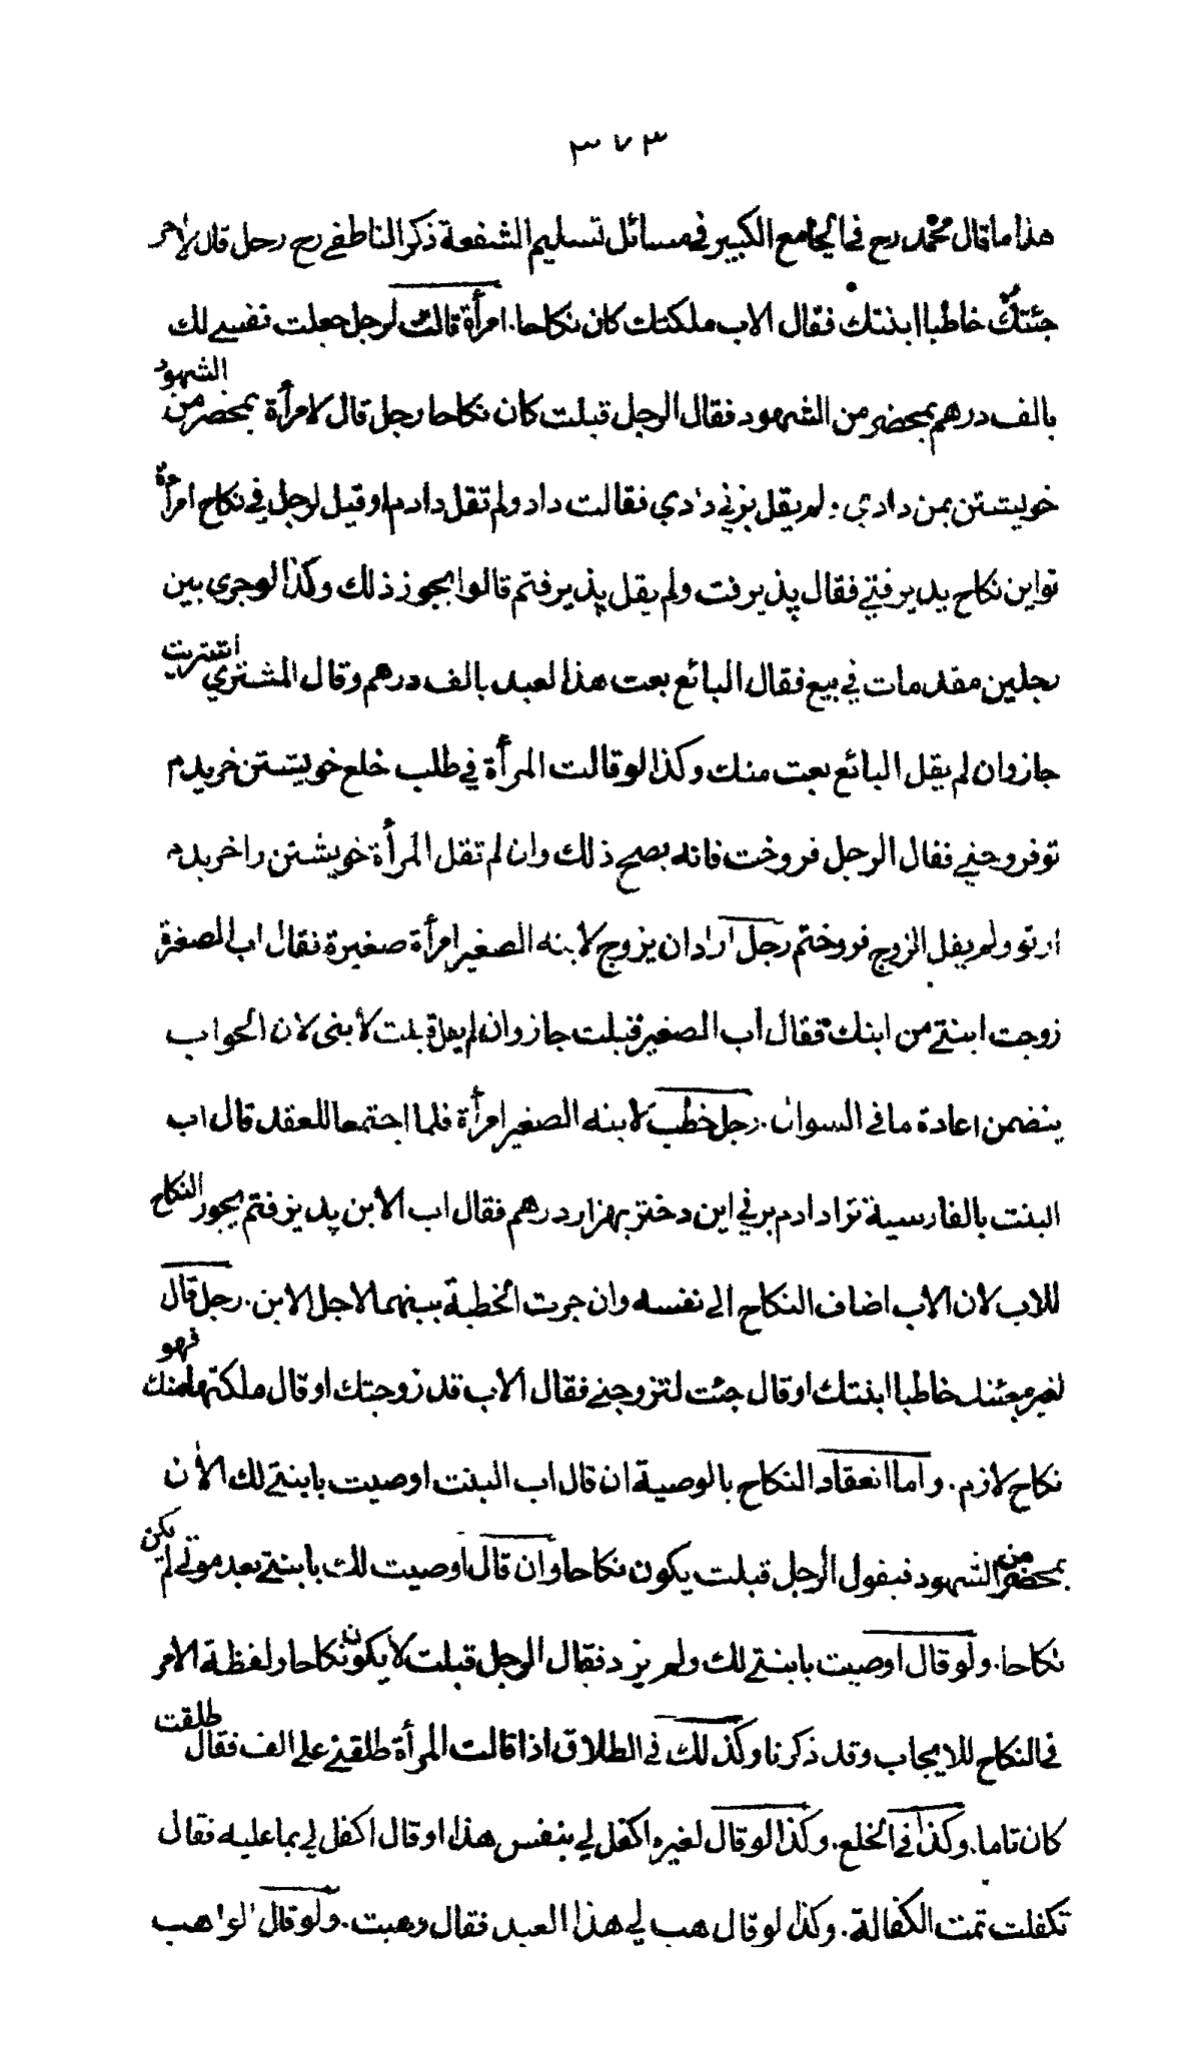 ٣٧٣
هذا ما قال محمد رح في الجامع الكبير في مسائل تسليم الشفعة ذكر الناطفي رح رجل قال لآخر
جئتك خاطبا ابنتك فقال الاب ملكتك كان نكاحا. امرأة قالت لرجل جعلت نفسي لك
بالف درهم بمحضر من الشهود فقال الرجل قبلت كان نكاحا رجل قال لامرأة بمحضر من الشهود
خويشتن بمن دادي ولم يقل بزني دادي فقالت داد ولم تقل دادم او قيل لرجل في نكاح امرأة
تو اين نكاح پديرفتي فقال پذيرفت ولم يقل پذيرفتم قالوا يجوز ذلك وكذا لو جرى بين
رجلين مقدمات في بيع فقال البائع بعت هذا العبد بالف درهم وقال المشتري اشتريت
جاز وان لم يقل البائع بعت منك وكذا لو قالت المرأة في طلب خلع خويشتن خريدم
تو فروختي فقال الرجل فروخت فانه يصح ذلك وان لم تقل المرأة خويشتن را خريدم
از تو ولم يقل الزوج فروختم رجل اراد ان يزوج لابنه الصغير امرأة صغيرة فقال اب الصغيرة
زوجت ابنتي من ابنك فقال أب الصغير قبلت جاز وان لم يقل قبلت لأبنى لان الجواب
يتضمن اعادة ما في السوال. رجل خطب لابنه الصغير امرأة فلما اجتمعا للعقد قال اب
البنت بالفارسية ترا دادم بزني اين دختر بهزار درهم فقال اب الابن پديرفتم يجوز النكاح
للاب لان الاب اضاف النكاح الى نفسه وان جرت الخطبة بينهما لاجل الابن. رجل قال
لغيره جئتك خاطبا ابنتك او قال جئت لتزوجني فقال الاب قد زوجتك او قال ملكتها منك فهو
نكاح لازم. واما انعقاد النكاح بالوصية ان قال اب البنت اوصيت بابنتي لك الأن
بمحضر من الشهود فيقول الرجل قبلت يكون نكاحا وان قال اوصيت لك بابنتي بعد موتي لم يكن
نكاحا. ولو قال اوصيت بابنتي لك ولم يزد فقال الرجل قبلت لا يكون نكاحا ولفظة الأمر
في النكاح للايجاب وقد ذكرنا وكذلك في الطلاق اذا قالت المرأة طلقني على الف فقال طلقت
كان تاما. وكذا في الخلع. وكذا لو قال لغيره اكفل لي بنفس هذا او قال اكفل لي بما عليه فقال
تكفلت تمت الكفالة. وكذا لو قال هب لي هذا العبد فقال وهبت. ولو قال الواهب